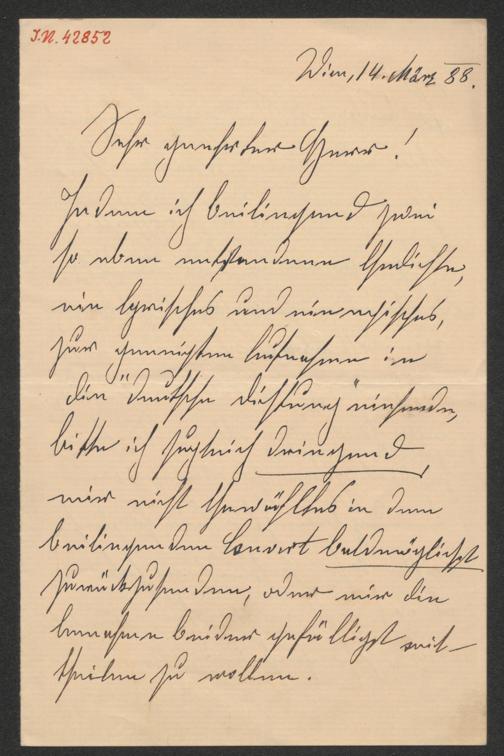 I.N. 42852
Wien, 14. März 88.
Sehr geehrter Herr!
Indem ich beiliegend zwei
so eben entstandene Gedichte,
ein lyrisches und ein episches,
zur geneigten Aufnahme in
die "Deutsche Dichtung" einsende,
bitte ich zugleich dringend,
mir nicht Gewähltes in dem
beiliegenden Couvert baldmöglichst
zurückzusenden, oder mir die
Annahme beider gefälligst mit-
theilen zu wollen.